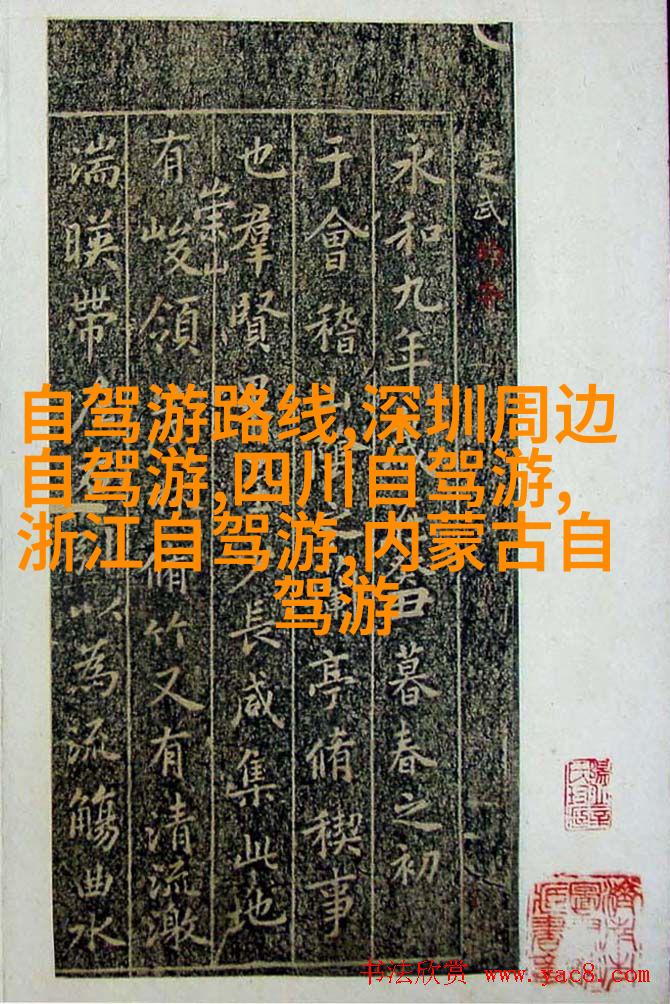 自驾游路线,深圳周边
自驾游,四川自驾游,
浙江自驾游,内蒙古自
驾游
定武
永和九年暮春之初
于會稽山亭脩稧事
也羣賢少長咸集此地
崇山
有峻領脩竹又有清流激
湍暎帶以為流觴曲水
书法欣赏 www.yac8.com